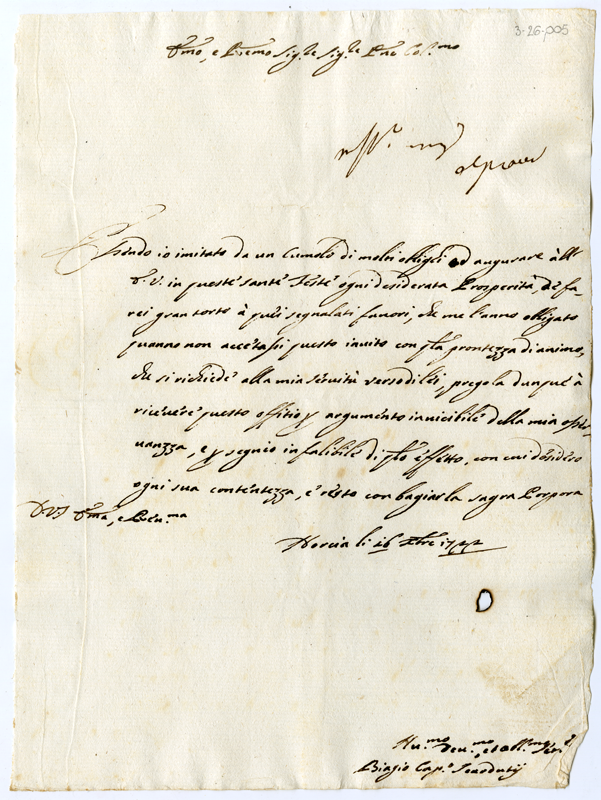 3-26-005
Emo, e Revmo Sigre Sigre Prne Colmo
Essendo io imitato da un Cumolo di molti oblighi ad augurare all'
E. V. in queste sante Feste ogni desiderata Prosperità, de fa-
rei gran torto à quei segnalati favori, che me l'anno obligato
quanno non accetassi questo invito con qlla prontezza di animo,
che si richiede alla mia servitù verso di lei, prego la dunque à
ricevere questo offitio p argumento invicibile della mia osser-
vanzza, e p segnio in falibile di qllo effetto, con cui desidero
ogni sua contentezza, e resto con bagiar la sagra Porpora
D V E Ema, e Reuma
Norcia li 26 Xbre 1722
Humo Deumo et Obbmo Sere
Biagio Capo Scardutij